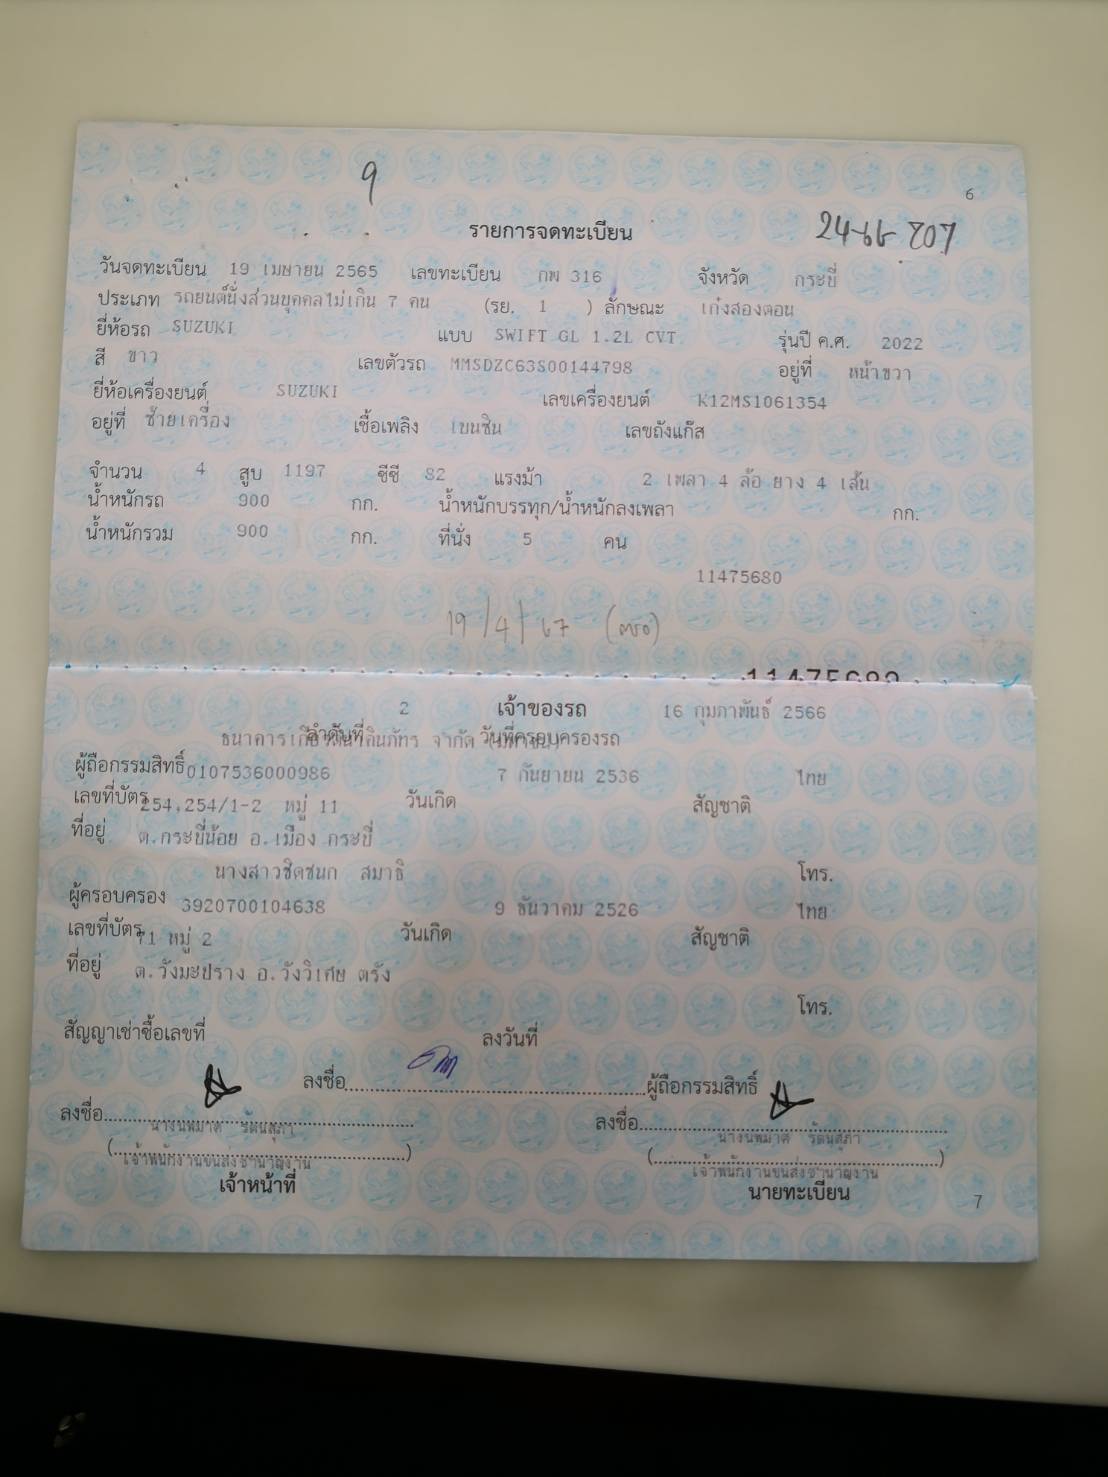 9
6
รายการจดทะเบียน
วันจดทะเบียน 19 เมษายน 2565 เลขทะเบียน กพ 316 จังหวัด กระบี่
ประเภท รถยนต์นั่งส่วนบุคคลไม่เกิน 7 คน (รย. 1 ) ลักษณะ เก๋งสองตอน
ยี่ห้อรถ SUZUKI แบบ SWIFT GL 1.2L CVT รุ่นปี ค.ศ. 2022
สี ขาว เลขตัวรถ MMSDZC63S00144798 อยู่ที่ หน้าขวา
ยี่ห้อเครื่องยนต์ SUZUKI เลขเครื่องยนต์ K12MS1061354
อยู่ที่ ซ้ายเครื่อง เชื้อเพลิง เบนซิน เลขถังแก๊ส
จำนวน 4 สูบ 1197 ซีซี 82 แรงม้า 2 เพลา 4 ล้อ ยาง 4 เส้น
น้ำหนักรถ 900 กก. น้ำหนักบรรทุก/น้ำหนักลงเพลา กก.
น้ำหนักรวม 900 กก. ที่นั่ง 5 คน
11475680
19/4/67 (ตรอ)
2 เจ้าของรถ 16 กุมภาพันธ์ 2566
ลำดับที่ วันที่ครอบครองรถ
ธนาคารเกียรตินาคินภัทร จำกัด (มหาชน)
ผู้ถือกรรมสิทธิ์ 0107536000986 7 กันยายน 2536 ไทย
เลขที่บัตร 254,254/1-2 หมู่ 11 วันเกิด สัญชาติ
ที่อยู่ ต.กระบี่น้อย อ.เมือง กระบี่
นางสาวชิดชนก สมาธิ โทร.
ผู้ครอบครอง 3920700104638 9 ธันวาคม 2526 ไทย
เลขที่บัตร 71 หมู่ 2 วันเกิด สัญชาติ
ที่อยู่ ต.วังมะปราง อ.วังวิเศษ ตรัง
โทร.
สัญญาเช่าซื้อเลขที่ ลงวันที่
ลงชื่อ ผู้ถือกรรมสิทธิ์
ลงชื่อ ลงชื่อ
นางนพมาศ รัตนสุภา นางนพมาศ รัตนสุภา
เจ้าพนักงานขนส่งชำนาญงาน เจ้าพนักงานขนส่งชำนาญงาน
เจ้าหน้าที่ นายทะเบียน
7